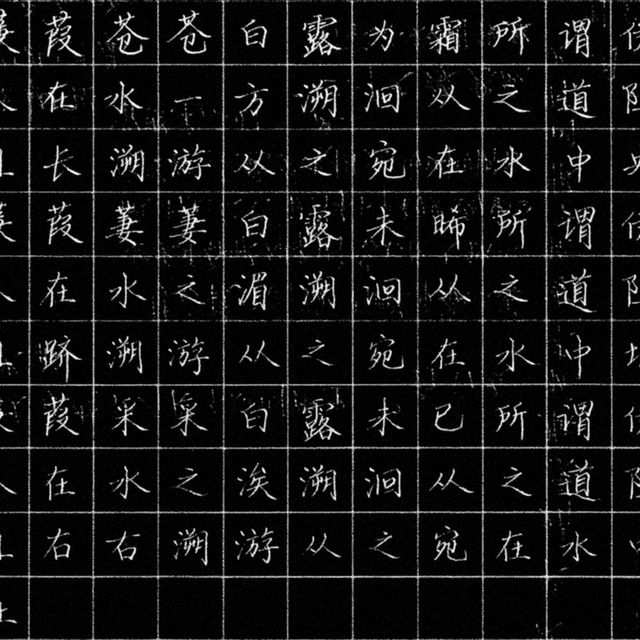 葭苍苍白露为霜所谓
在水一方溯洄从之道
长溯游从之宛在水中
葭萋萋白露未晞所谓
在水之湄溯洄从之道
跻溯游从之宛在水中
葭采采白露未已所谓
在水之涘溯洄从之道
右右溯游从之宛在水